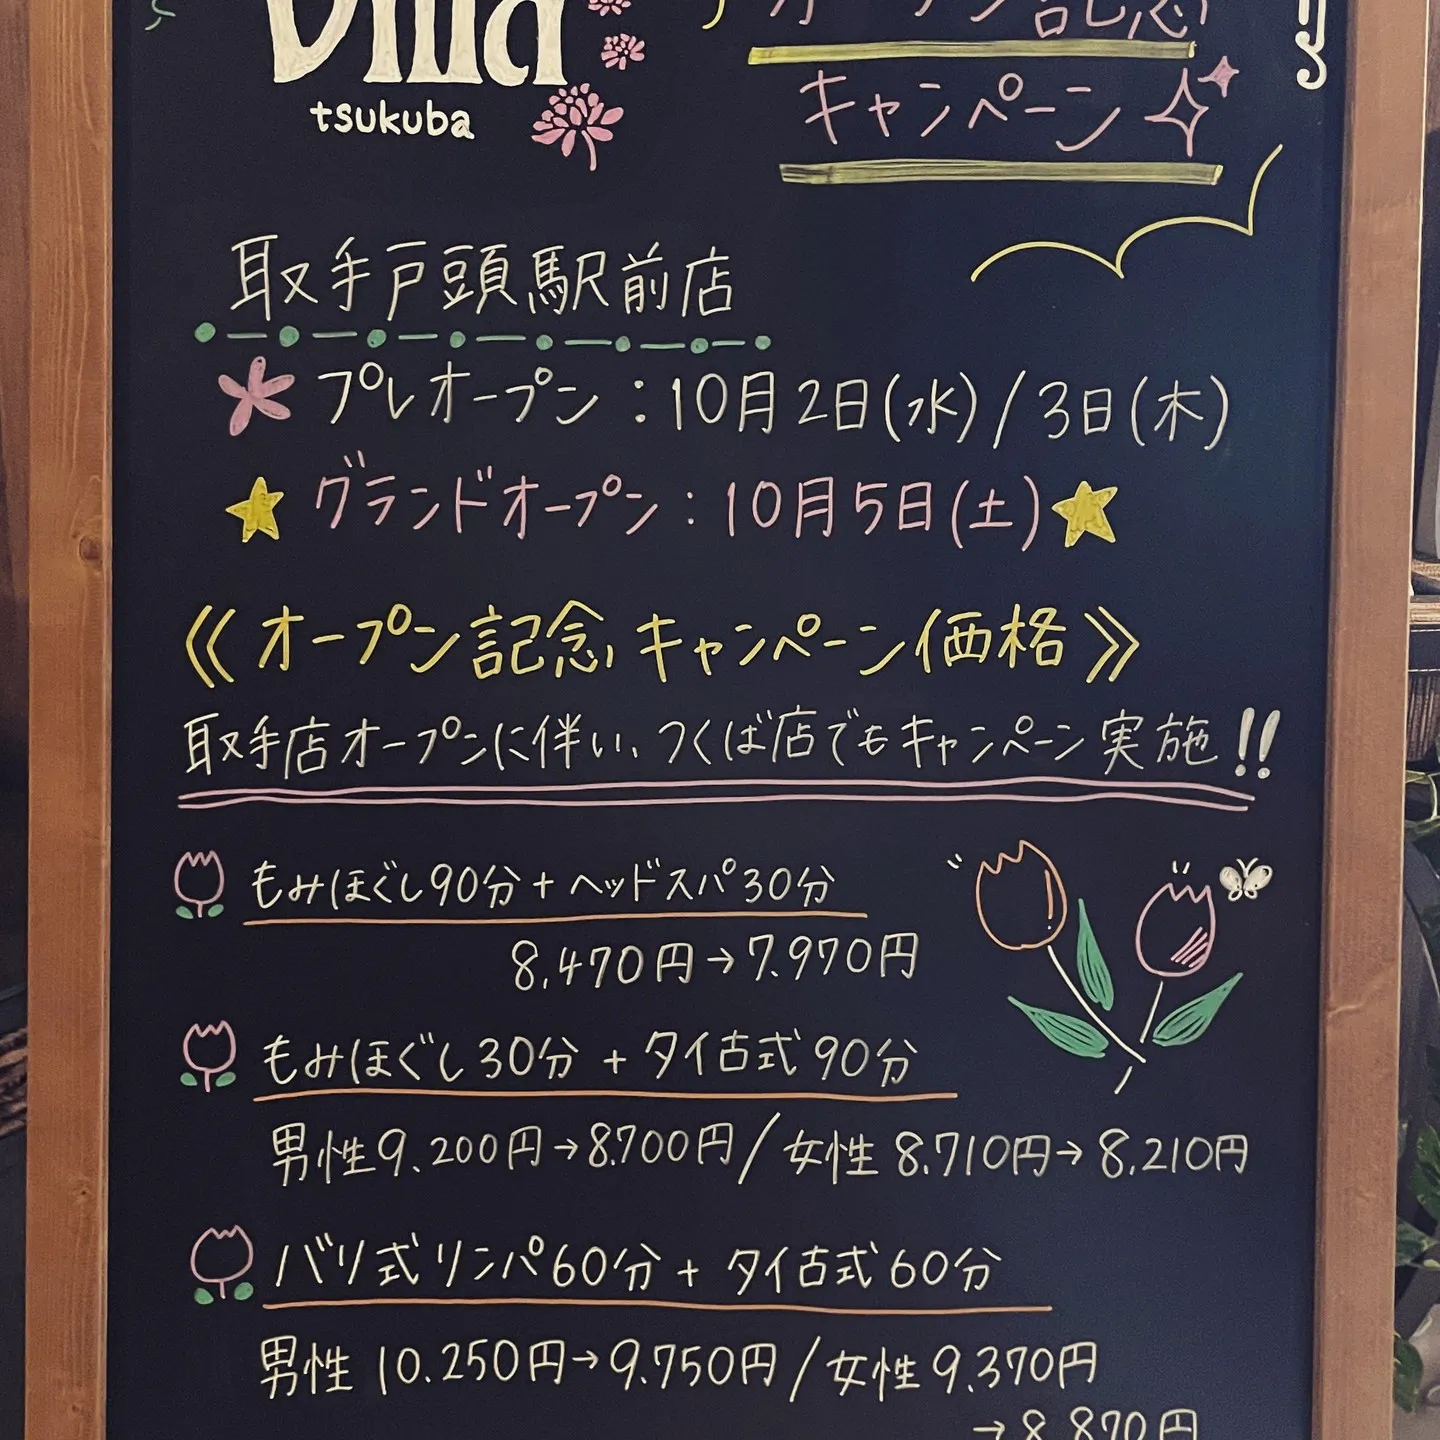 Villa
tsukuba
オープン記念
キャンペーン
取手戸頭駅前店
プレオープン：10月2日(水)/3日(木)
グランドオープン：10月5日(土)
《オープン記念キャンペーン価格》
取手店オープンに伴い、つくば店でもキャンペーン実施!!
もみほぐし90分+ヘッドスパ30分
8.470円→7.970円
もみほぐし30分+タイ古式90分
男性9.200円→8.700円/女性8.710円→8.210円
バリ式リンパ60分+タイ古式60分
男性10.250円→9.750円/女性9.370円
→8.870円